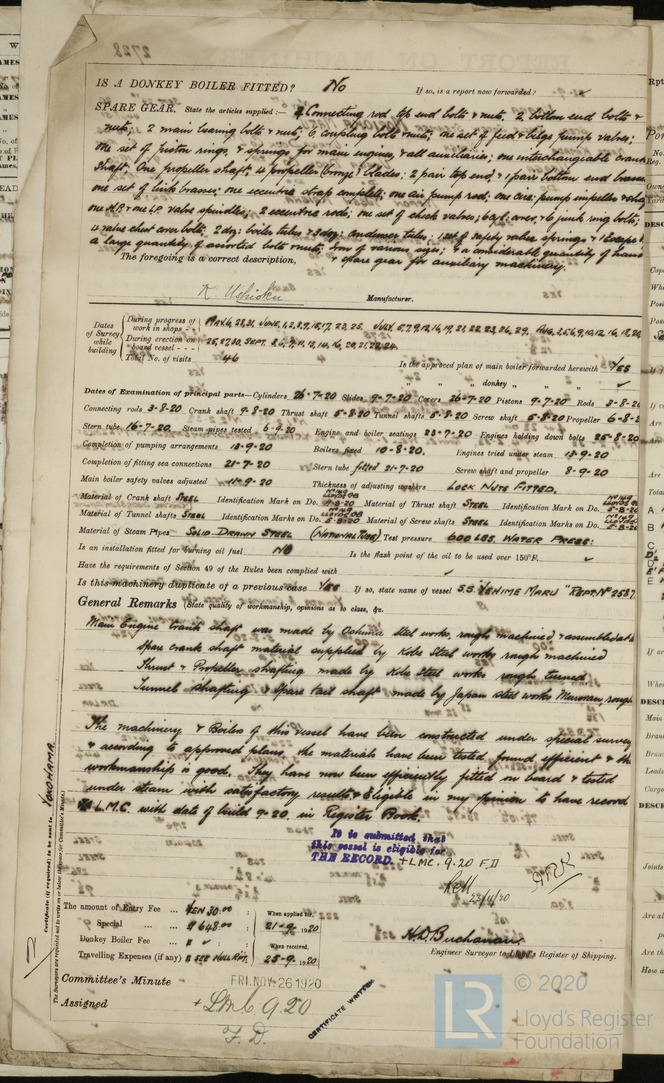 2728
IS A DONKEY BOILER FITTED? No If so, is a report now forwarded?
SPARE GEAR. State the articles supplied:— 4 Connecting rod top end bolts & nuts, 2 bottom end bolts &
nuts, 2 main bearing bolts & nuts, 6 coupling bolts & nuts, one set of feed & bilge pump valves;
one set of piston rings, & springs for main engines, & all auxiliaries; one interchangeable crank
shaft. One propeller shaft, 4 propeller (bronze) blades; 2 pair top end, & 1 pair bottom end brasses
one set of link brasses; one eccentric strap complete; one air pump rod; one circ. pump impeller &
one H.P. & one L.P. valve spindles; 2 eccentric rods; one set of check valves; cover & 6 junk ring bolts;
4 valve chest cover bolts; 2 doz: boiler tubes & 3 doz: condenser tubes; 1 set of safety valve springs &
a large quantity of assorted bolts & nuts; iron of various sizes; & a considerable quantity of
The foregoing is a correct description, & spare gear for auxiliary machinery.
Manufacturer.
Dates of Survey while building
During progress of work in shops - - MAY 6, 28, 31, JUNE, 1, 2, 8, 9, 15, 17, 22, 25, JULY 5, 7, 9, 12, 16, 19, 21, 22, 23, 26, 29, AUG, 3, 5, 6, 9, 10, 12, 16, 18, 20
During erection on board vessel - - - 25, 27, 30, SEPT. 3, 6, 9, 11, 13, 14, 16, 20, 21, 22, 24.
Total No. of visits 46
Is the approved plan of main boiler forwarded herewith YES
" " " donkey " " "
Dates of Examination of principal parts—Cylinders 26-7-20 Slides 9-7-20 Covers 26-7-20 Pistons 9-7-20 Rods 3-8-20
Connecting rods 3-8-20 Crank shaft 9-8-20 Thrust shaft 5-8-20 Tunnel shafts 5-8-20 Screw shaft 5-8-20 Propeller 6-8-2
Stern tube 16-7-20 Steam pipes tested 6-9-20 Engine and boiler seatings 23-7-20 Engines holding down bolts 25-8-20
Completion of pumping arrangements 13-9-20 Boilers fixed 10-8-20. Engines tried under steam 13-9-20
Completion of fitting sea connections 21-7-20 Stern tube fitted 21-7-20 Screw shaft and propeller 8-9-20
Main boiler safety valves adjusted 11-9-20 Thickness of adjusting washers LOCK NUTS FITTED.
Material of Crank shaft STEEL Identification Mark on Do. LLOYDS 9-8-20 Material of Thrust shaft STEEL Identification Mark on Do. LLOYDS 5-8-20
Material of Tunnel shafts STEEL Identification Marks on Do. LLOYDS 5-8-20 Material of Screw shafts STEEL Identification Marks on Do. LLOYDS 5-8-20
Material of Steam Pipes SOLID DRAWN STEEL (NATIONAL TUBE) Test pressure 600 LBS. WATER PRESS:
Is an installation fitted for burning oil fuel NO Is the flash point of the oil to be used over 150°F.
Have the requirements of Section 49 of the Rules been complied with
Is this machinery duplicate of a previous case YES If so, state name of vessel S.S. "YEHIME MARU" REPT. No 2587
General Remarks (State quality of workmanship, opinions as to class, &c.
Main Engine crank shaft was made by Oshima Steel works rough machined & assembled at
spare crank shaft material supplied by Kobe Steel works rough machined
Thrust & Propeller shafting made by Kobe Steel works rough turned
Tunnel shafting & Spare tail shaft made by Japan steel works Muroran rough
The machinery & Boilers of this vessel have been constructed under special survey
& according to approved plans, the materials have been tested found efficient & the
workmanship is good. They have now been efficiently fitted on board & tested
under steam with satisfactory results & Eligible in my opinion to have record
L.M.C. with date of build 9-20. in Register Book.
It is submitted that
this vessel is eligible for
THE RECORD. + LMC. 9.20 F.D
23/11/20
Certificate (if required) to be sent to YOKOHAMA
(The Surveyors are requested not to write on or below the space for Committee's Minute.)
The amount of Entry Fee ... YEN 30.00 : When applied for,
Special ... ... " 648.00 : 21-9-1920
Donkey Boiler Fee ... " : When received,
Travelling Expenses (if any) " SEE HULL RPT. 25-9-1920
H.D. Buchanan
Engineer Surveyor to Lloyd's Register of Shipping.
Committee's Minute FRI. NOV. 26 1920
Assigned + LMC 9.20
F.D.
CERTIFICATE WRITTEN
© 2020
LR
Lloyd's Register
Foundation